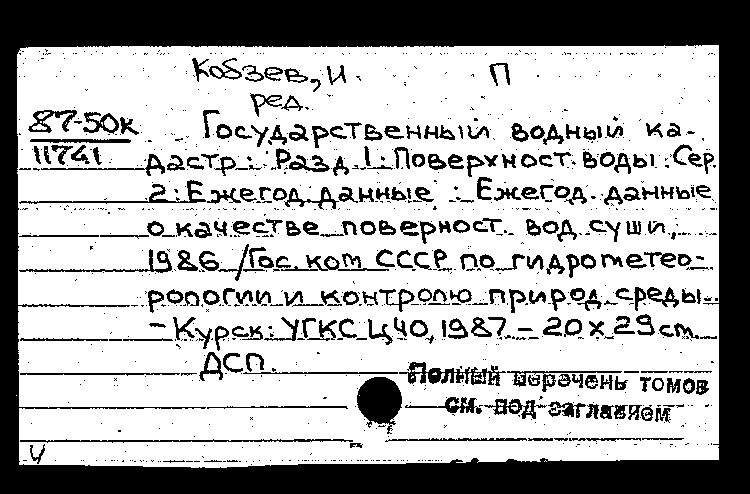 Кобзев, И. П
ред.
87-50к Государственный водный ка-
11741 дастр: Разд 1: Поверхност. воды. Сер.
2: Ежегод. данные : Ежегод. данные
о качестве поверност. вод суши,
1986 / Гос. ком СССР по гидрометео-
рологии и контролю природ. среды.
– Курск: УГКС ЦЧО, 1987 – 20 х 29 cm.
ДСП.
Полный перечень томов
см. под заглавием